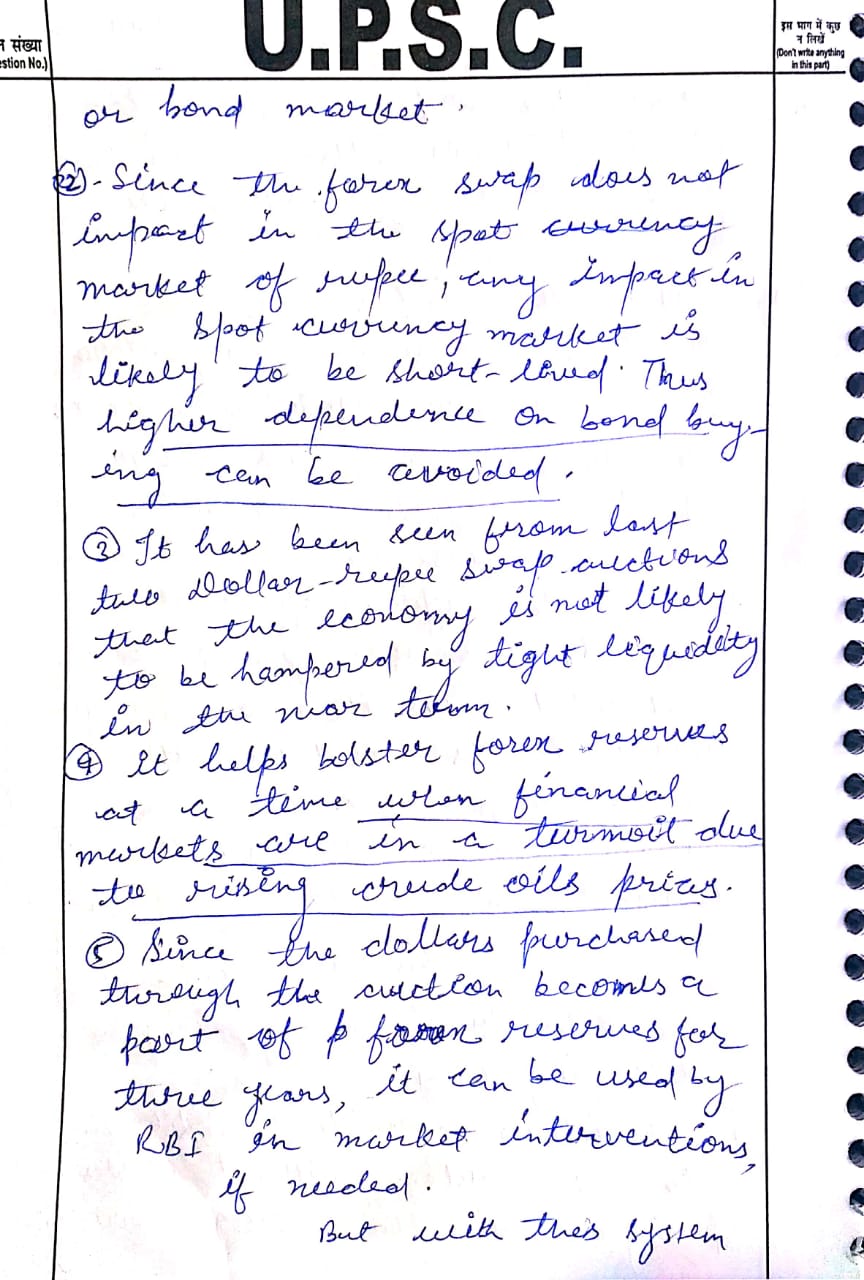 U.P.S.C.
न संख्या
estion No.)
इस भाग में कुछ
न लिखें
(Don't write anything
in this part)
or bond market.
② - Since the forex swap does not
impact in the spot currency
market of rupee, any impact in
the spot currency market is
likely to be short-lived. Thus
higher dependence on bond buy-
ing can be avoided.
③ It has been seen from last
two Dollar-rupee swap auctions
that the economy is not likely
to be hampered by tight liquidity
in the near term.
④ It helps bolster forex reserves
at a time when financial
markets are in a turmoil due
to rising crude oils prices.
⑤ Since the dollars purchased
through the auction becomes a
part of forex reserves for
three years, it can be used by
RBI in market interventions,
if needed.
But with this system